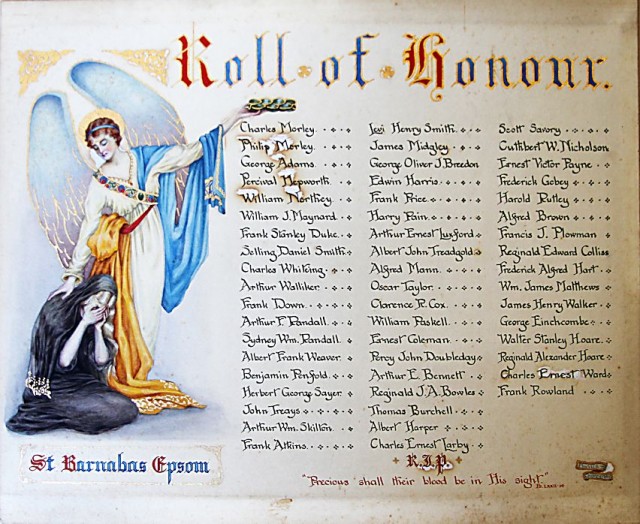 Roll of Honour.
Charles Morley
Philip Morley
George Adams
Percival Hepworth
William Northey
William J. Maynard
Frank Stanley Duke
Selling Daniel Smith
Charles Whiting
Arthur Walliker
Frank Down
Arthur F. Randall
Sydney Wm. Randall
Albert Frank Weaver
Benjamin Penfold
Herbert George Sayer
John Treays
Arthur Wm. Skilton
Frank Atkins
Levi Henry Smith
James Midgley
George Oliver J. Breedon
Edwin Harris
Frank Price
Harry Pain
Arthur Ernest Luxford
Albert John Treadgold
Alfred Mann
Oscar Taylor
Clarence R. Cox
William Paskell
Ernest Coleman
Percy John Doubleday
Arthur E. Bennett
Reginald J.A. Bowles
Thomas Burchell
Albert Harper
Charles Ernest Larby
Scott Savory
Cuthbert W. Nicholson
Ernest Victor Payne
Frederick Gobey
Harold Putley
Alfred Brown
Francis J. Plowman
Reginald Edward Colliss
Frederick Alfred Hart
Wm. James Matthews
James Henry Walker
George Einchcombe
Walter Stanley Hoare
Reginald Alexander Hoare
Charles Ernest Ward
Frank Rowland
St Barnabas Epsom
R.I.P.
"Precious shall their blood be in His sight."